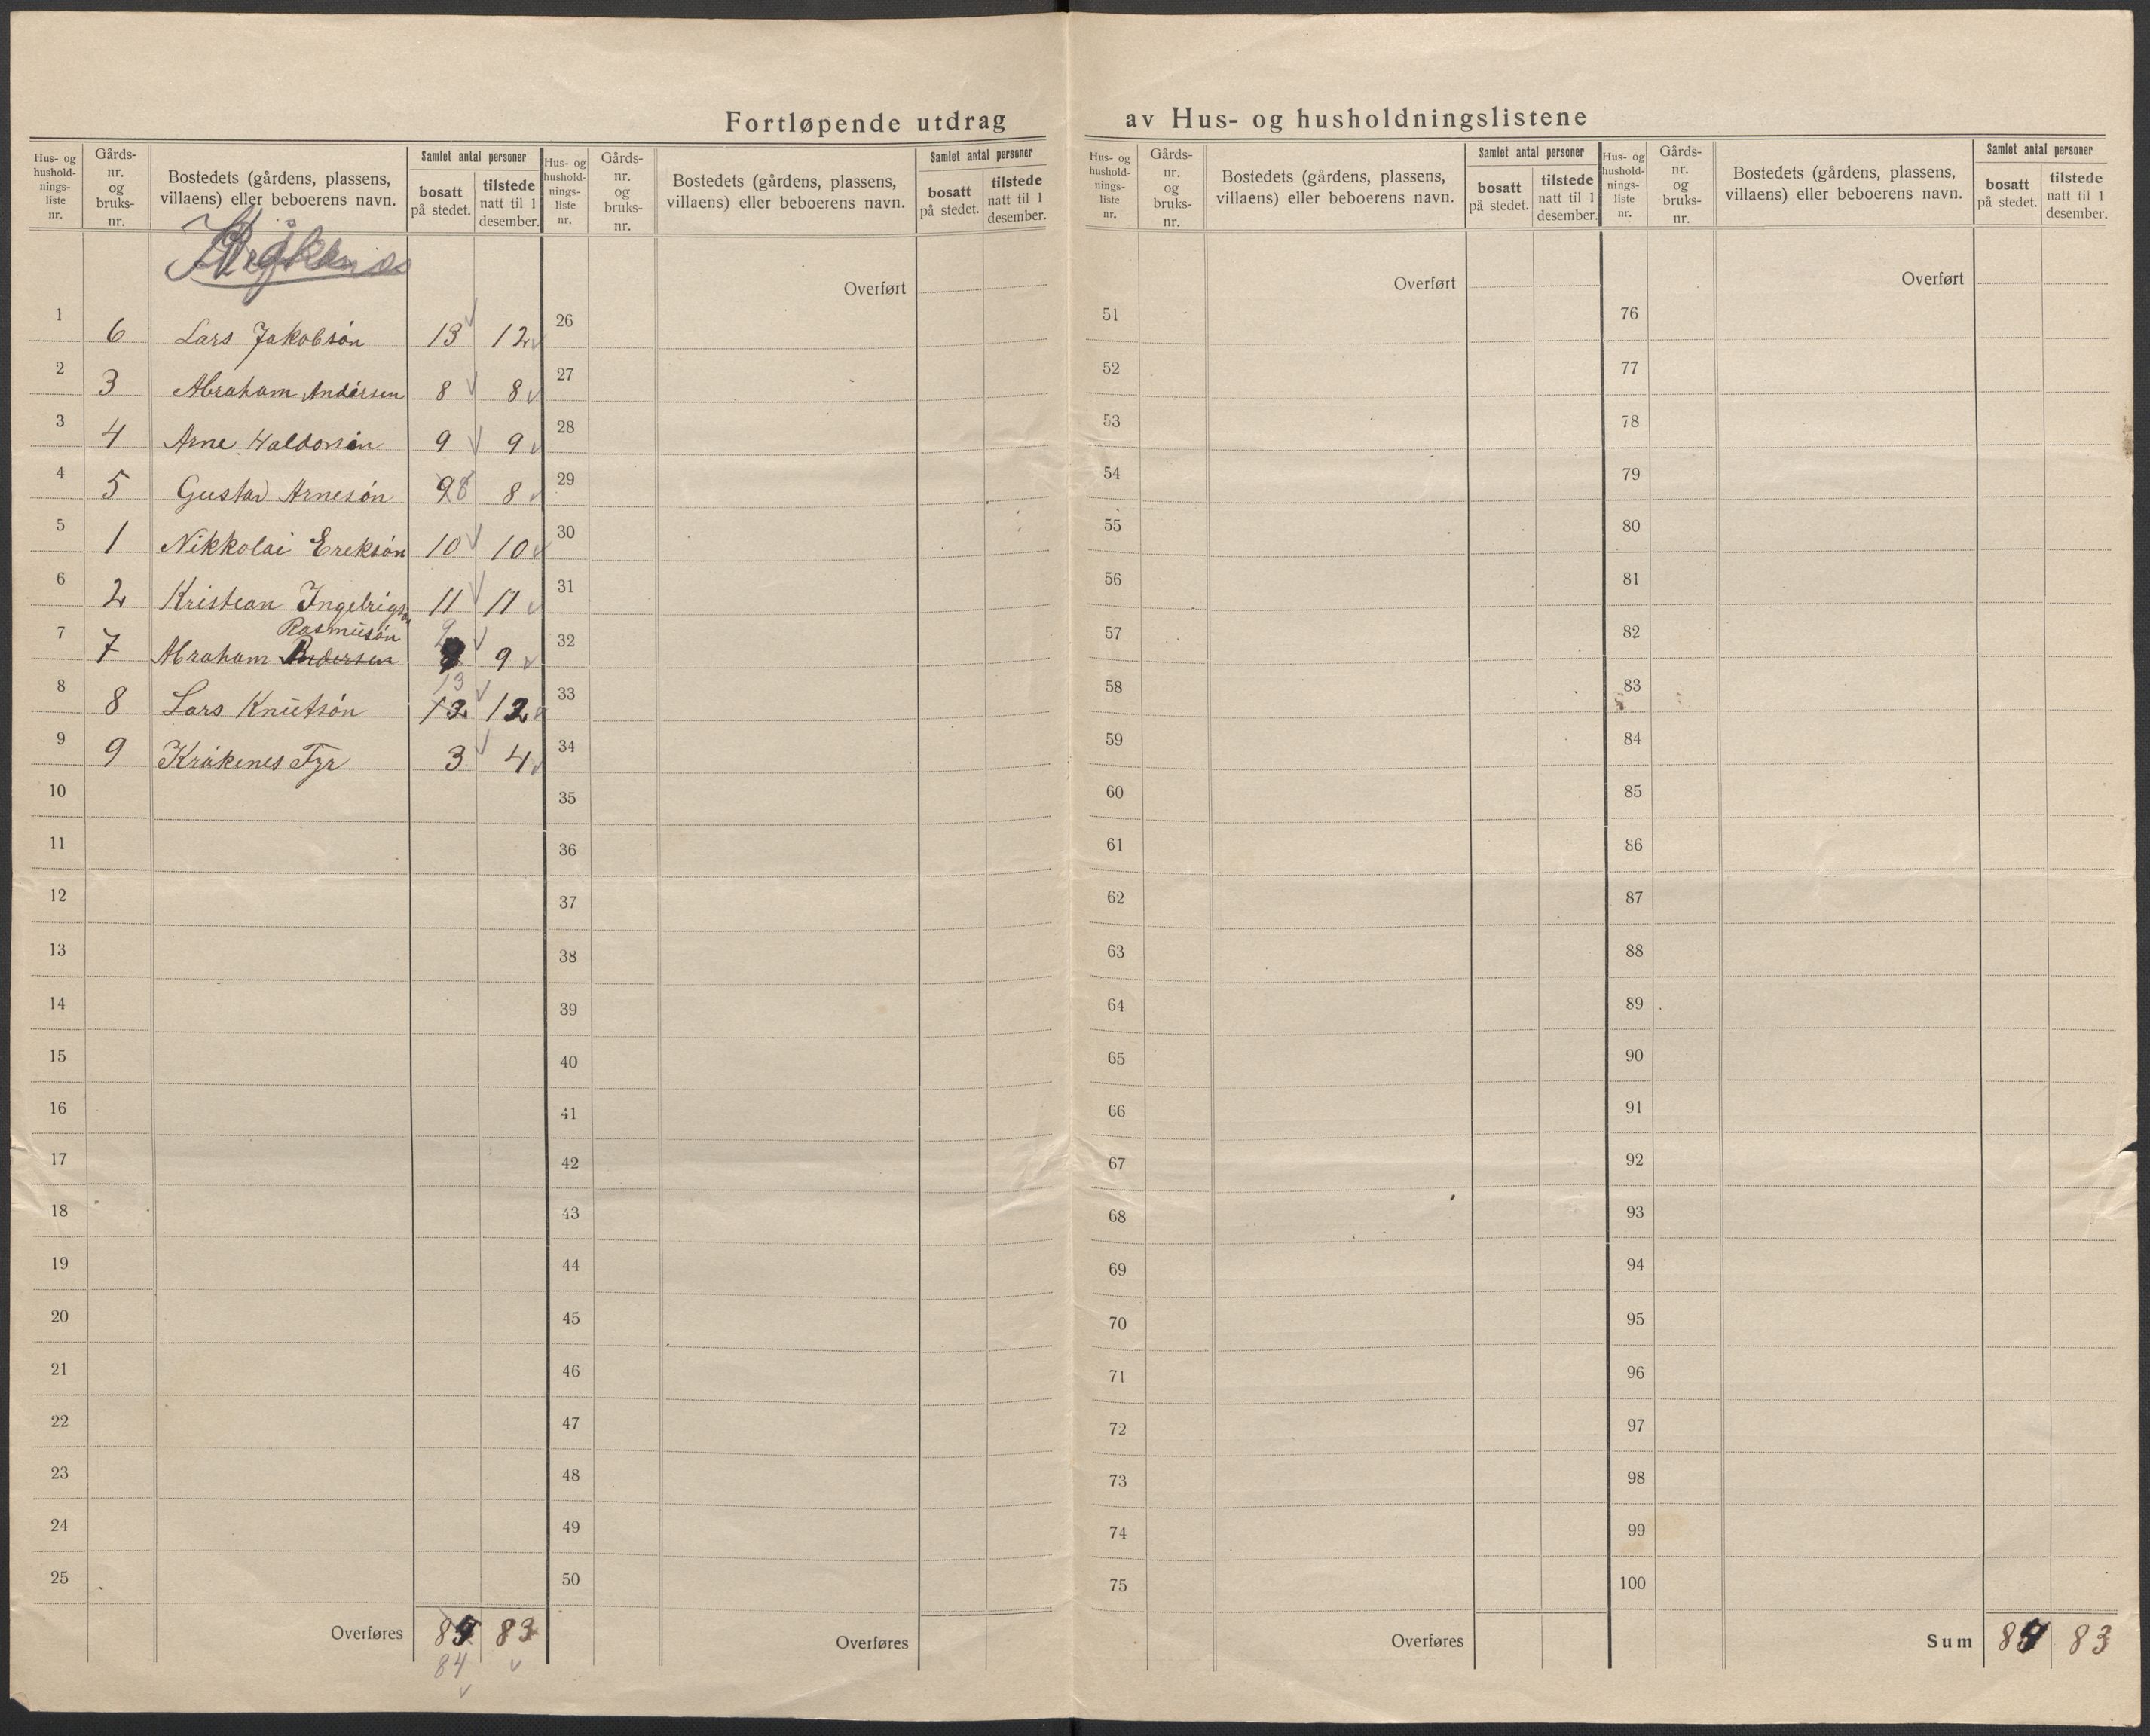 Fortløpende utdrag av Hus- og husholdningslistene
Hus- og hushold-nings-liste nr.
Gårds-nr. og bruks-nr.
Bostedets (gårdens, plassens, villaens) eller beboerens navn.
Samlet antal personer
bosatt på stedet.
tilstede natt til 1 desember.
Hus- og hushold-nings-liste nr.
Gårds-nr. og bruks-nr.
Bostedets (gårdens, plassens, villaens) eller beboerens navn.
Samlet antal personer
bosatt på stedet.
tilstede natt til 1 desember.
Hus- og hushold-nings-liste nr.
Gårds-nr. og bruks-nr.
Bostedets (gårdens, plassens, villaens) eller beboerens navn.
Samlet antal personer
bosatt på stedet.
tilstede natt til 1 desember.
Hus- og hushold-nings-liste nr.
Gårds-nr. og bruks-nr.
Bostedets (gårdens, plassens, villaens) eller beboerens navn.
Samlet antal personer
bosatt på stedet.
tilstede natt til 1 desember.
1 6 Lars Jakobsøn 13 12
2 3 Abraham Andersen 8 8
3 4 Arne Haldorsen 9 9
4 5 Gustav Arnesøn 9 8 8
5 1 Nikkolai Ereksøn 10 10
6 2 Kristean Ingebrigs 11 11
Rasmusøn 9
7 7 Abraham Andersen 9
13
8 8 Lars Knutsøn 12 12
9 9 Kråkenes Fyr 3 4
10
11
12
13
14
15
16
17
18
19
20
21
22
23
24
25
Overføres 83
84
Overført
26
27
28
29
30
31
32
33
34
35
36
37
38
39
40
41
42
43
44
45
46
47
48
49
50
Overføres
Overført
51
52
53
54
55
56
57
58
59
60
61
62
63
64
65
66
67
68
69
70
71
72
73
74
75
Overføres
Overført
76
77
78
79
80
81
82
83
84
85
86
87
88
89
90
91
92
93
94
95
96
97
98
99
100
Sum 84 83